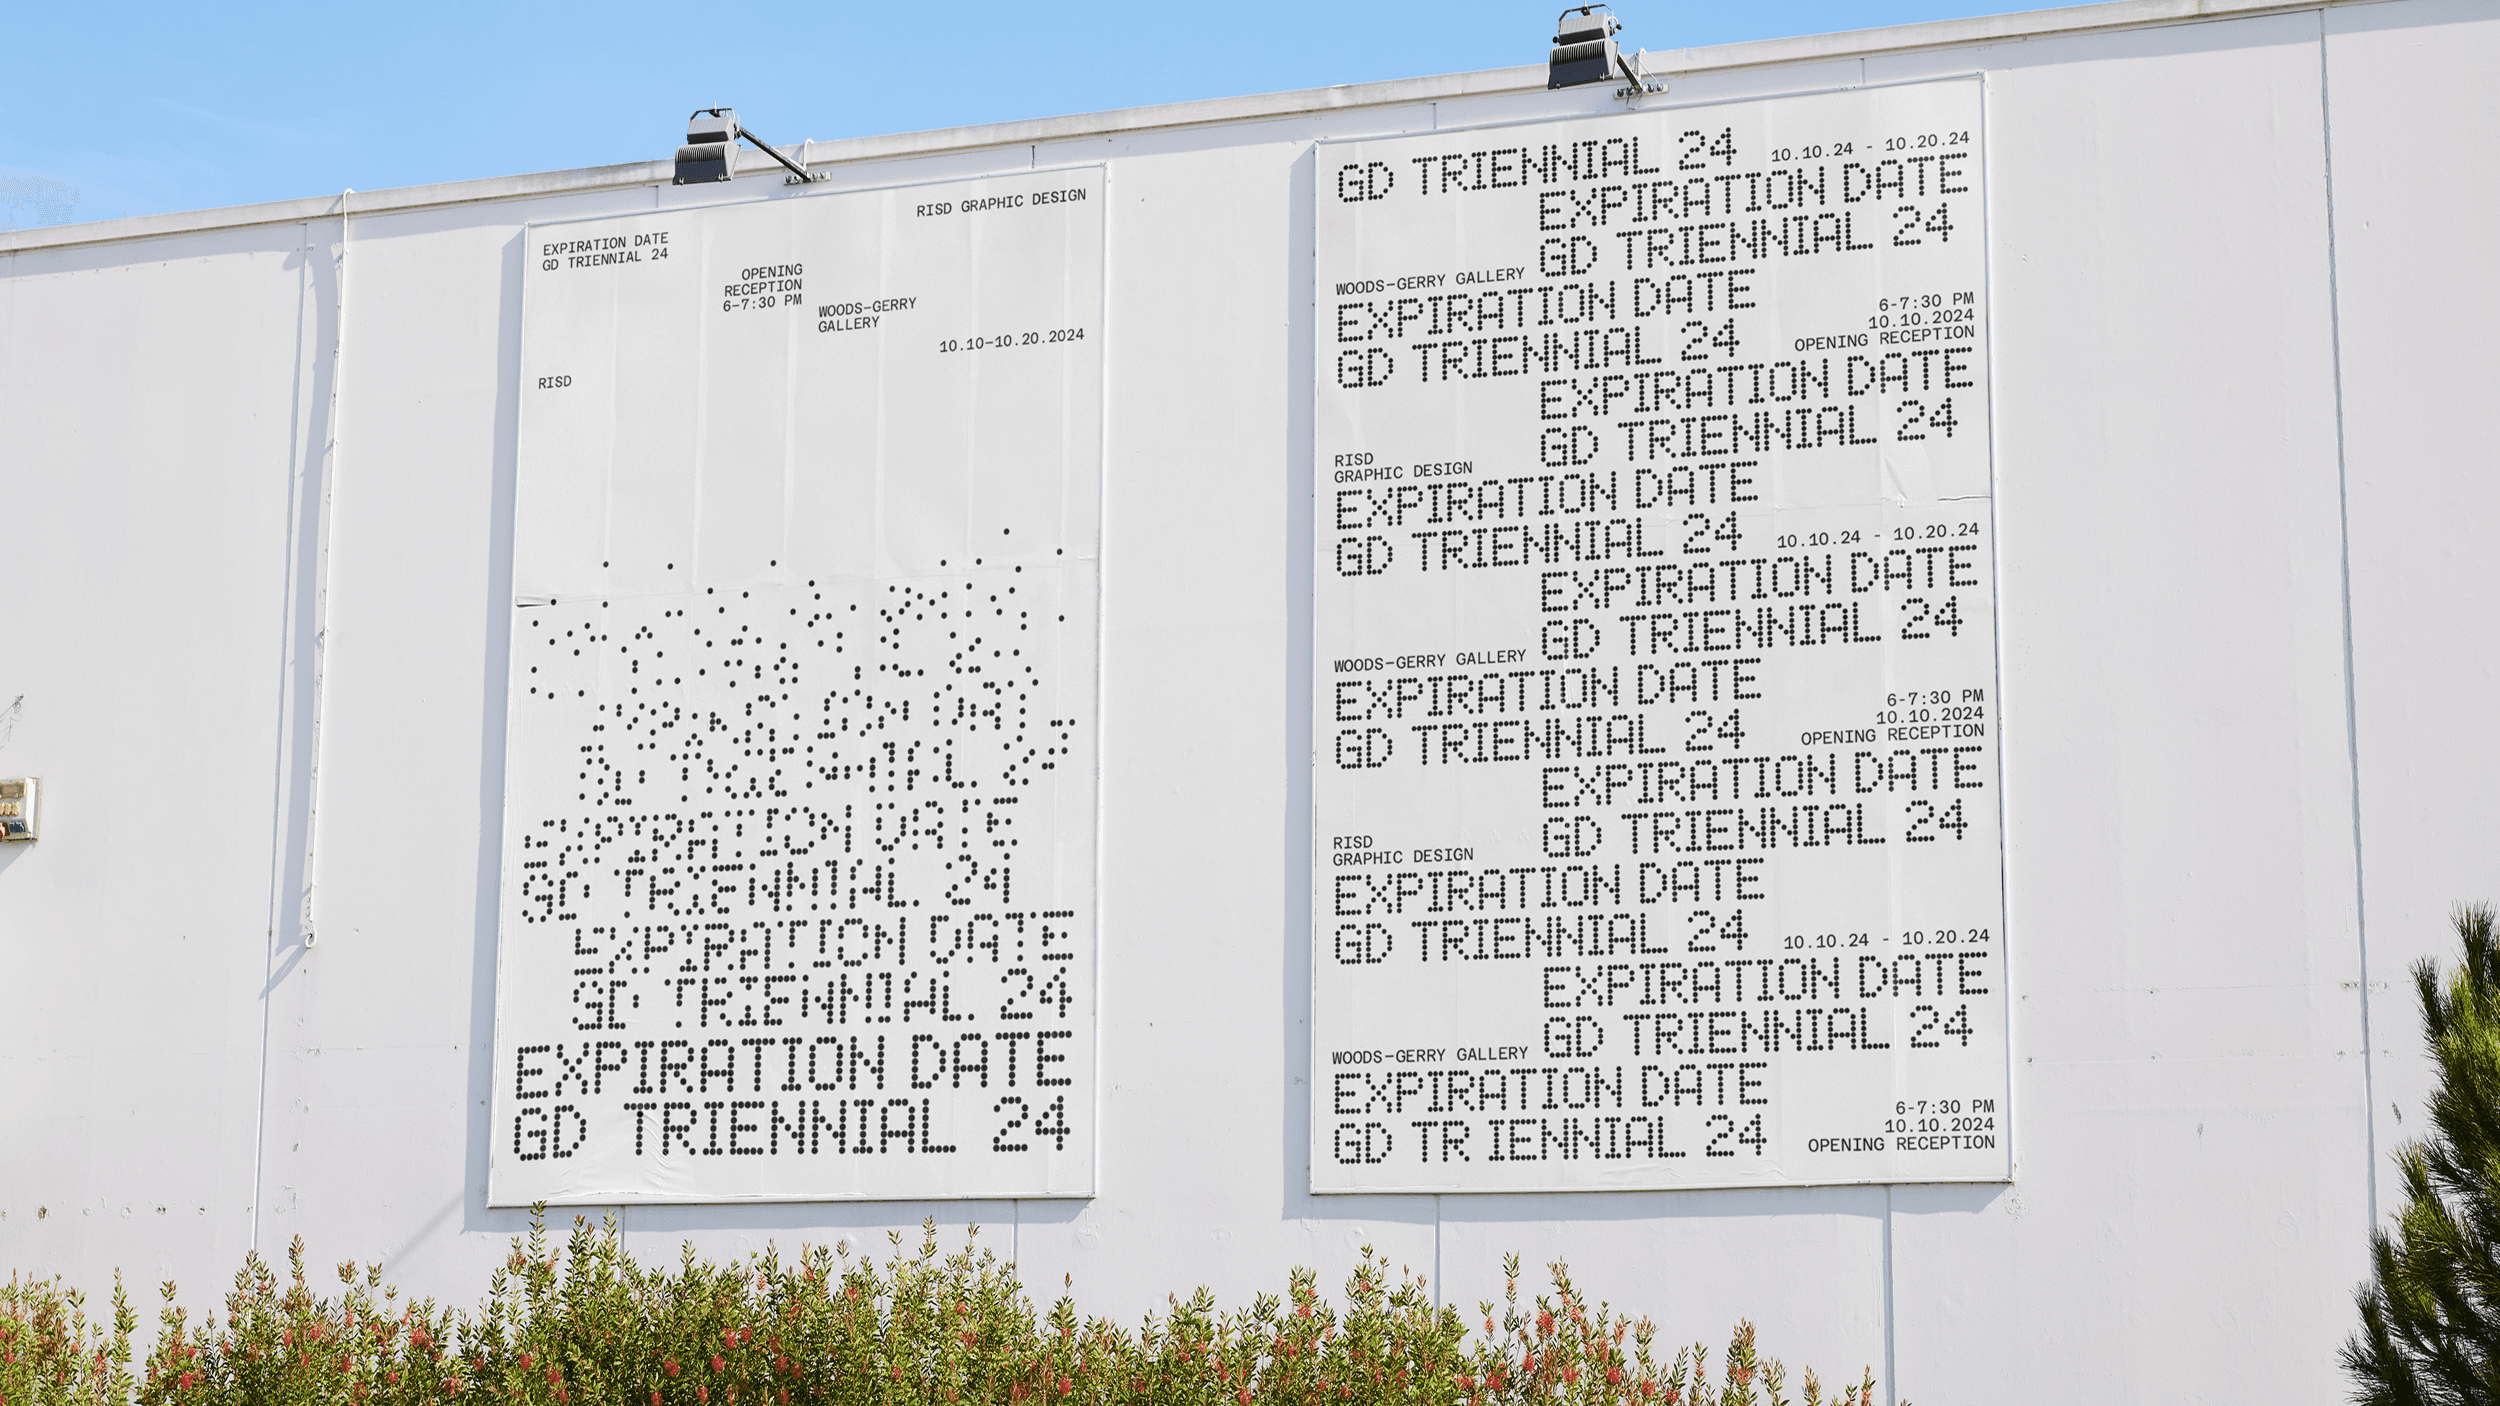 RISD GRAPHIC DESIGN
EXPIRATION DATE
GD TRIENNIAL 24
OPENING
RECEPTION
6–7:30 PM
WOODS–GERRY
GALLERY
10.10–10.20.2024
RISD
EXPIRATION DATE
GD TRIENNIAL 24
EXPIRATION DATE
GD TRIENNIAL 24
EXPIRATION DATE
GD TRIENNIAL 24
GD TRIENNIAL 24
10.10.24 - 10.20.24
EXPIRATION DATE
GD TRIENNIAL 24
WOODS–GERRY GALLERY
EXPIRATION DATE
GD TRIENNIAL 24
6-7:30 PM
10.10.2024
OPENING RECEPTION
EXPIRATION DATE
GD TRIENNIAL 24
RISD
GRAPHIC DESIGN
EXPIRATION DATE
GD TRIENNIAL 24
10.10.24 - 10.20.24
EXPIRATION DATE
GD TRIENNIAL 24
WOODS–GERRY GALLERY
EXPIRATION DATE
GD TRIENNIAL 24
6-7:30 PM
10.10.2024
OPENING RECEPTION
EXPIRATION DATE
GD TRIENNIAL 24
RISD
GRAPHIC DESIGN
EXPIRATION DATE
GD TRIENNIAL 24
10.10.24 - 10.20.24
EXPIRATION DATE
GD TRIENNIAL 24
WOODS–GERRY GALLERY
EXPIRATION DATE
GD TRIENNIAL 24
6-7:30 PM
10.10.2024
OPENING RECEPTION